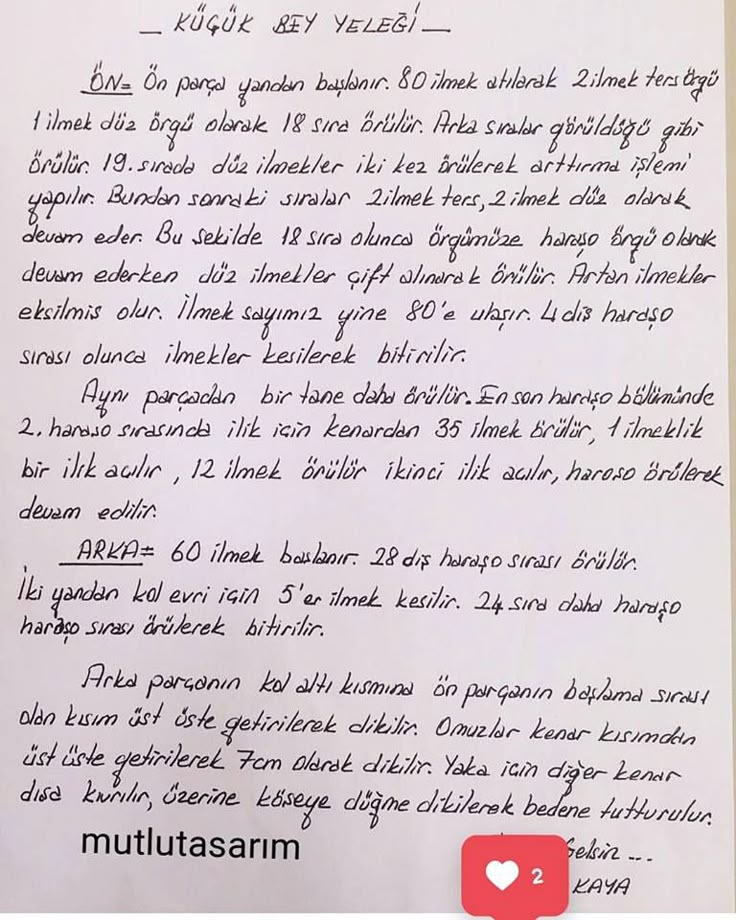 — KÜÇÜK BEY YELEĞİ —
ÖN= Ön parça yandan başlanır. 80 ilmek atılarak 2 ilmek ters örgü
1 ilmek düz örgü olarak 18 sıra örülür. Arka sıralar görüldüğü gibi
örülür. 19. sırada düz ilmekler iki kez örülerek arttırma işlemi
yapılır. Bundan sonraki sıralar 2 ilmek ters, 2 ilmek düz olarak
devam eder. Bu şekilde 18 sıra olunca örgümüze haraşo örgü olarak
devam ederken düz ilmekler çift alınarak örülür. Artan ilmekler
eksilmis olur. İlmek sayımız yine 80'e ulaşır. 4 diş haraşo
sırası olunca ilmekler kesilerek bitirilir.
Aynı parçadan bir tane daha örülür. En son haraşo bölümünde
2. haraso sırasında ilik için kenardan 35 ilmek örülür, 1 ilmeklik
bir ilik açılır, 12 ilmek örülür ikinci ilik açılır, haroso örülerek
devam edilir.
ARKA= 60 ilmek başlanır. 28 diş haraşo sırası örülür.
İki yandan kol evri için 5'er ilmek kesilir. 24 sıra daha haraşo
haraşo sırası örülerek bitirilir.
Arka parçanın kol altı kısmına ön parçanın başlama sırası
olan kısım üst üste getirilerek dikilir. Omuzlar kenar kısımdan
üst üste getirilerek 7cm olarak dikilir. Yaka için diğer kenar
dışa kıvrılır, üzerine köşeye düğme dikilerek bedene tutturulur.
mutlutasarım
Gelsin ...
2
KAYA